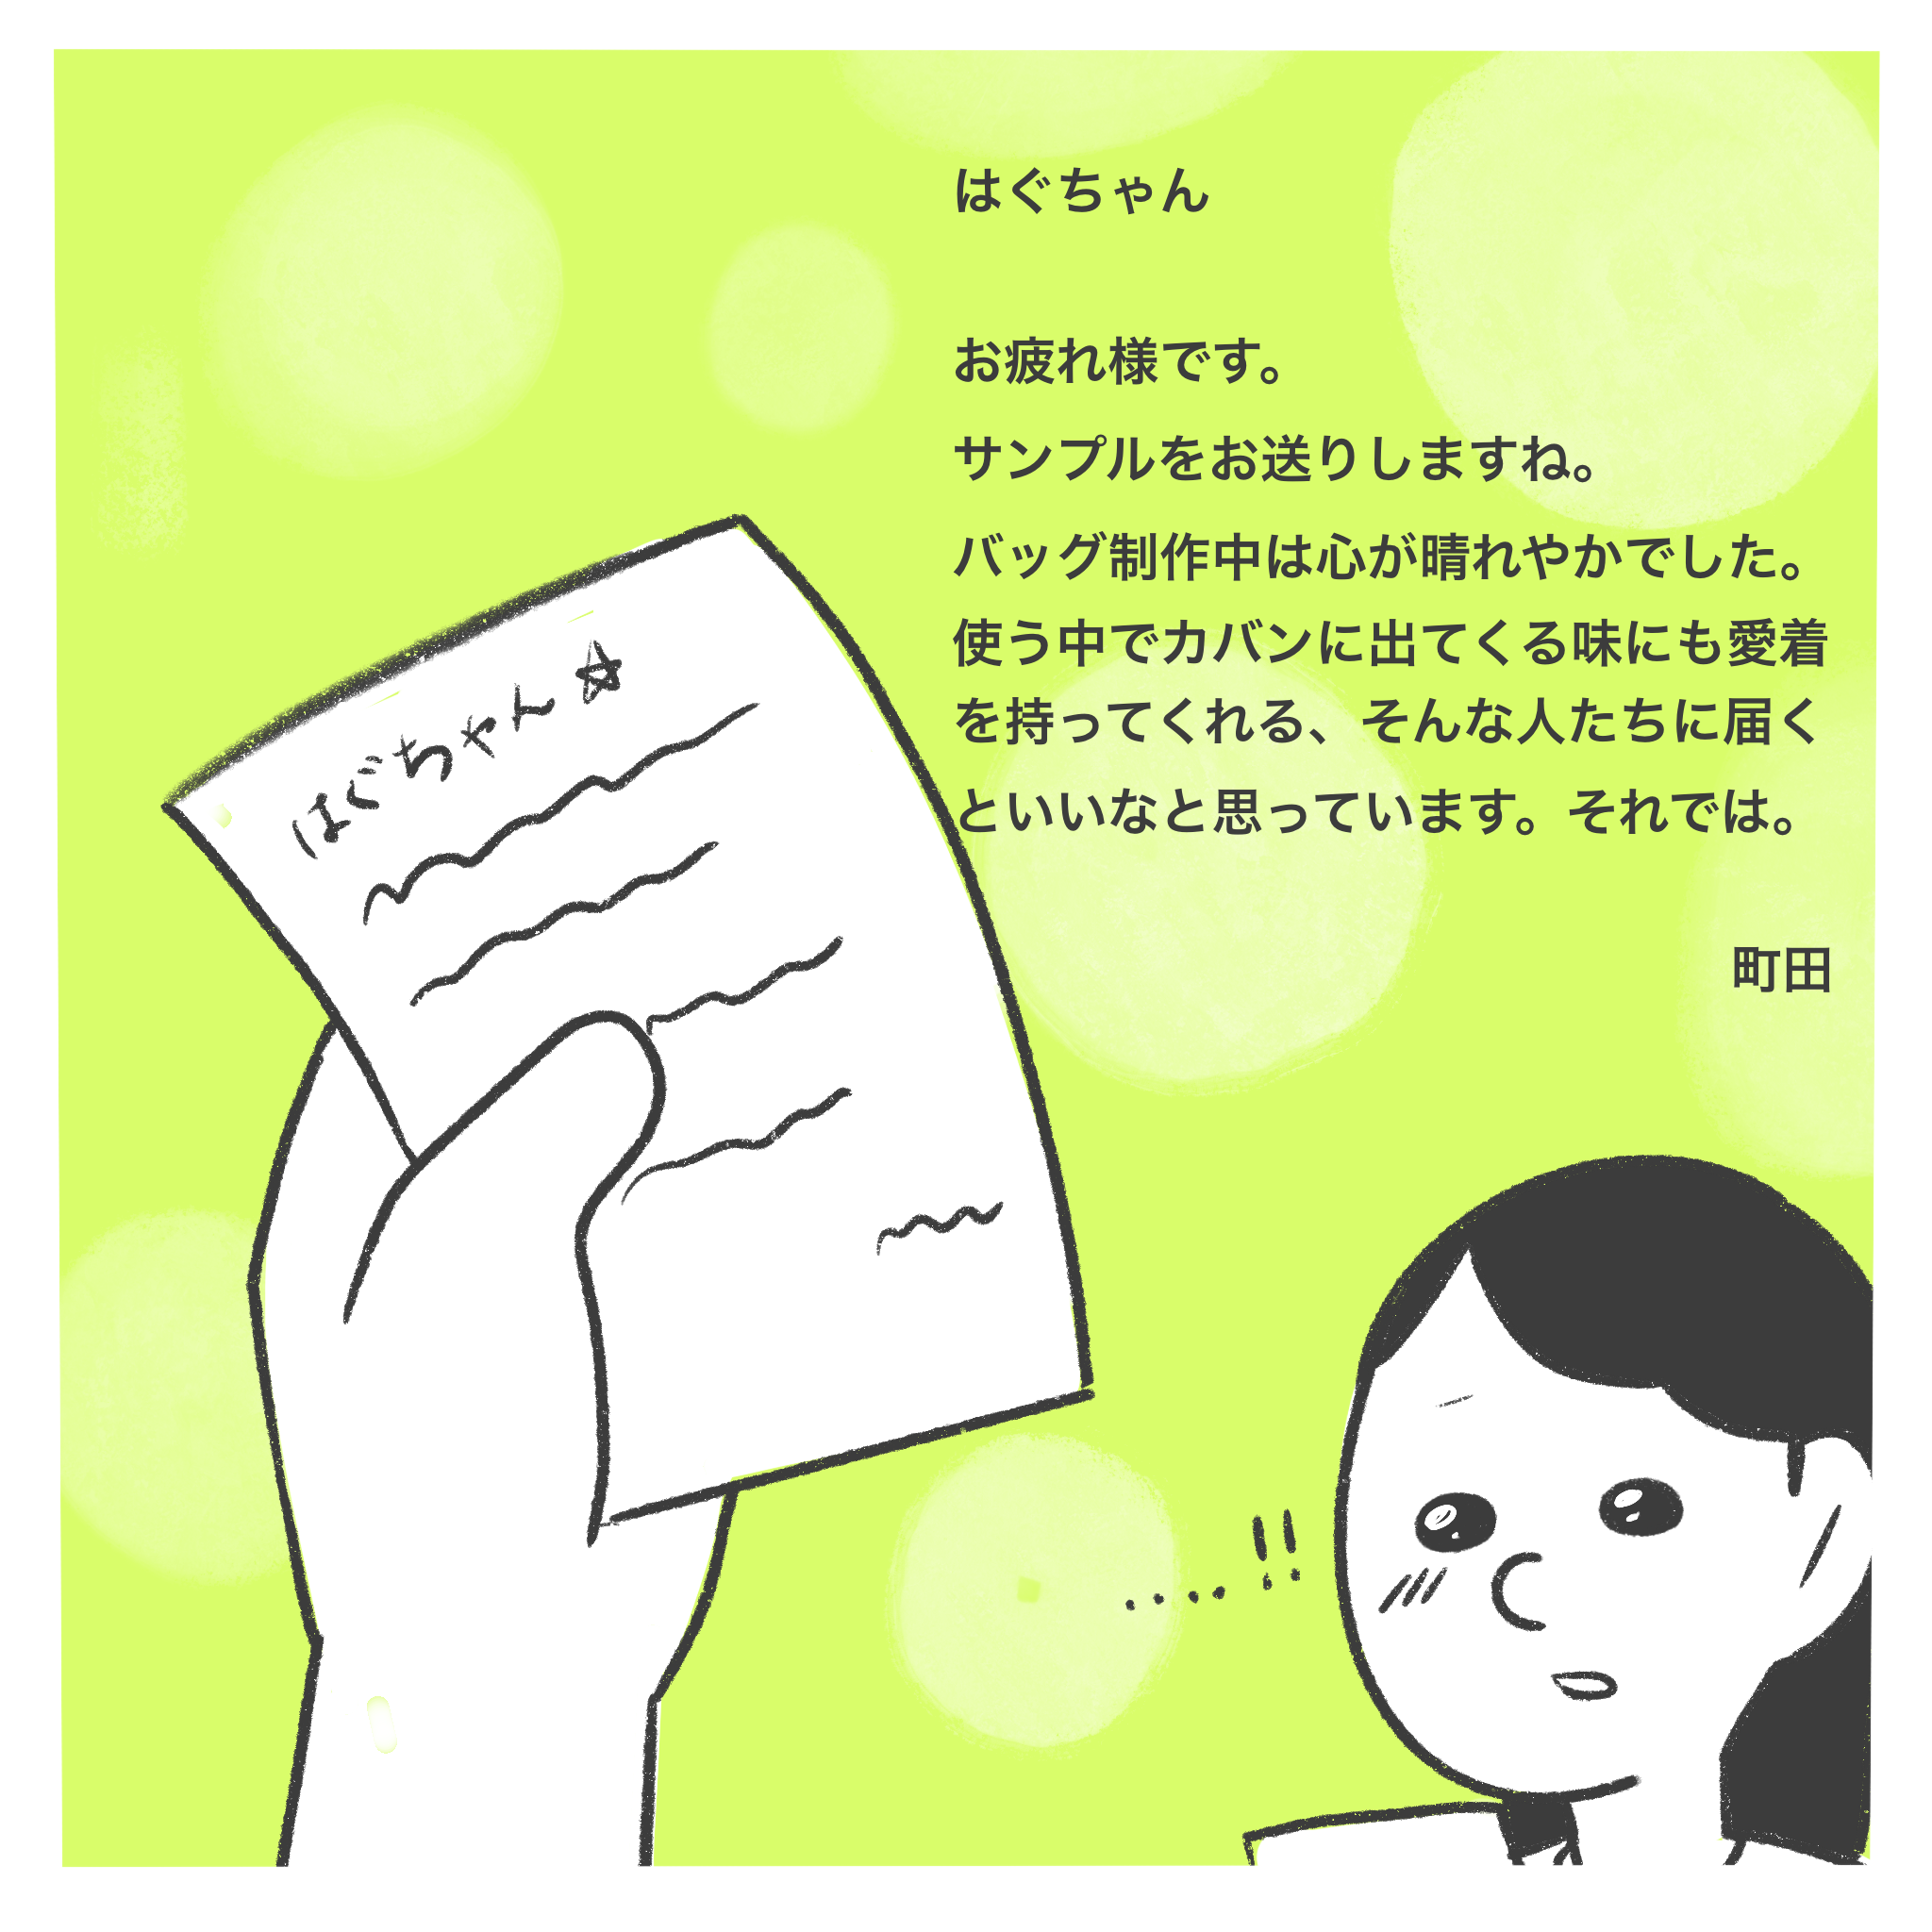 はぐちゃん
お疲れ様です。
サンプルをお送りしますね。
バッグ制作中は心が晴れやかでした。
使う中でカバンに出てくる味にも愛着
を持ってくれる、そんな人たちに届く
といいなと思っています。それでは。
町田
はぐちゃん☆
....!!